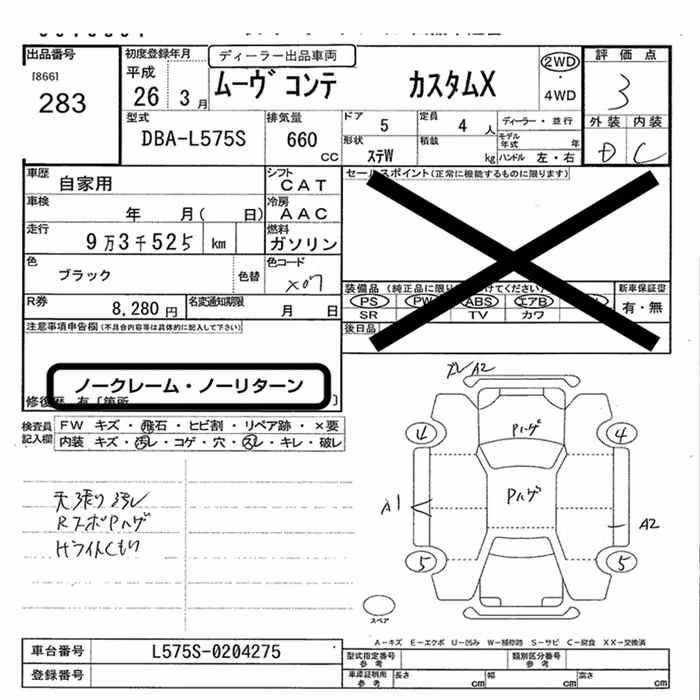 出品番号
[866]
283
初度登録年月
平成
26 3月
ディーラー出品車両
ムーヴ コンテ カスタムX
2WD
・
4WD
評価点
3
外装 内装
D C
型式
DBA-L575S
排気量
660 CC
ドア 5
定員 4 人
ディーラー・並行
形状 ステW
積載 kg
モデル年式 年
ハンドル 左・右
車歴
自家用
シフト
CAT
セールスポイント(正常に機能するものに限ります)
車検
年 月( 日)
冷房
AAC
走行
9万3千525 km
燃料
ガソリン
色
ブラック
色替
色コード
X07
装備品 (純正品に限り
けてください)
新車保証書
PS PW ABS エアB
SR TV カワ
有・無
R券
8,280円
名変通知期限
月 日
後日品
注意事項申告欄(不具合内容等は具体的に記入して下さい)
ノークレーム・ノーリターン
修復歴 有〔箇所 〕
検査員
記入欄
FW キズ・飛石・ヒビ割・リペア跡・×要
内装 キズ・汚レ・コゲ・穴・スレ・キレ・破レ
天張り汚レ
RスポPハゲ
HライトくもりズレA2
Pハゲ
4 4
Pハゲ
A1
A2
5 5
スペア
A-キズ E-エクボ U-凹み W-補修跡 S-サビ C-腐食 XX-交換済
車台番号
L575S-0204275
登録番号
型式指定番号
参考
類別区分番号
参考
車庫証明用
参考
長さ cm
幅 cm
高さ cm